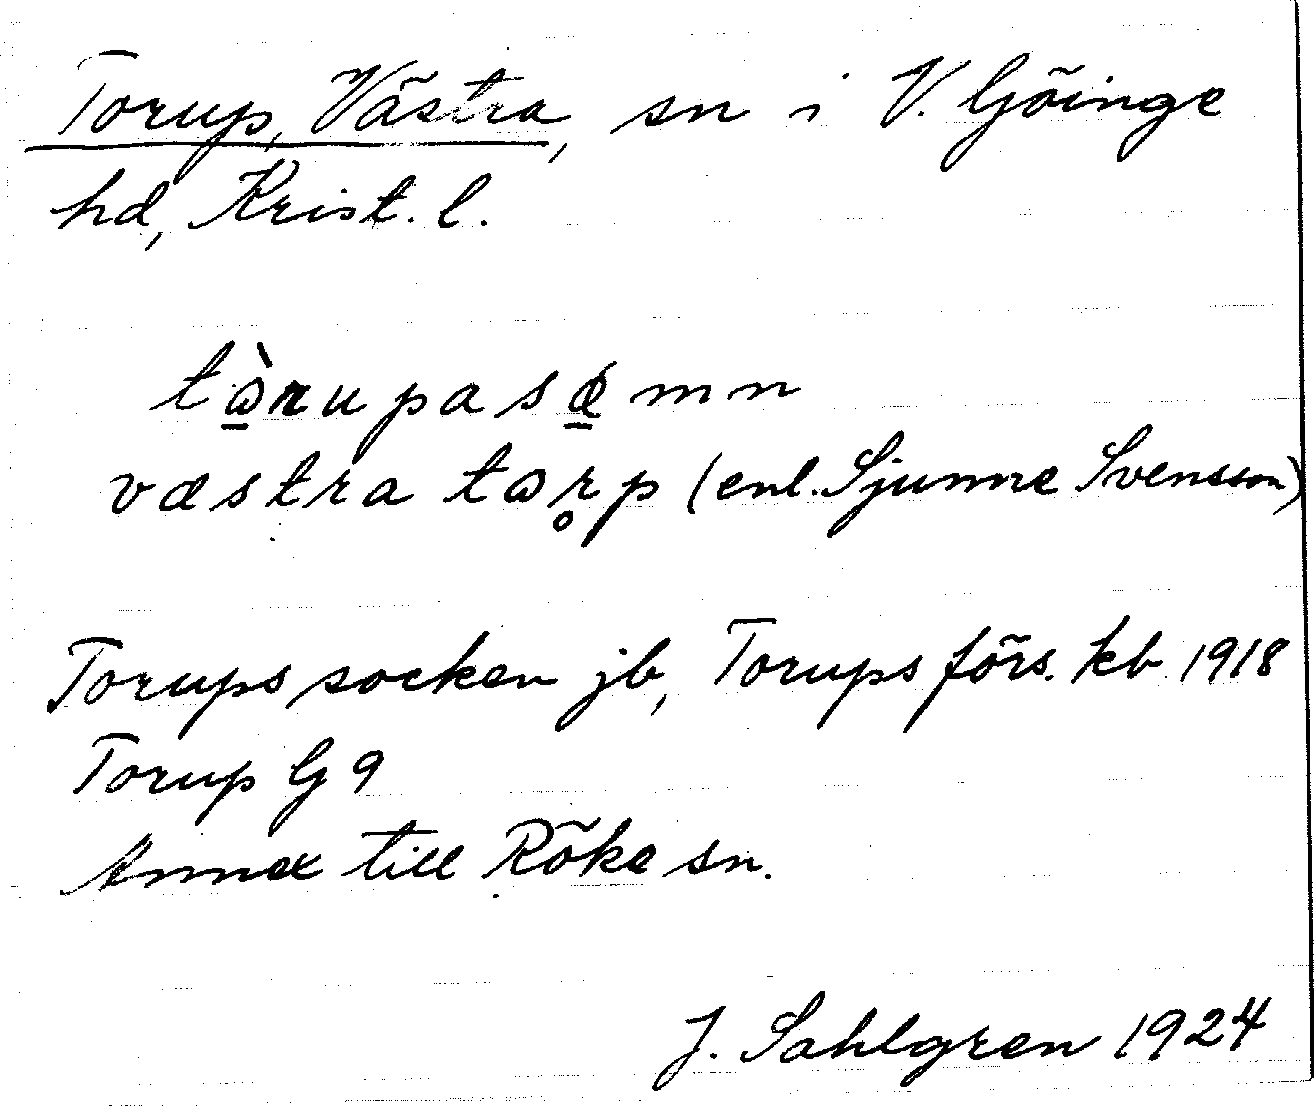 Torup, Västra, sn i V. Göinge
hd, Krist. l.
tɷ̱̀rupasø̱mn
væstra tɷr̥p (enl. Sjunne Svensson)
Torups socken jb, Torups förs. kb 1918
Torup G 9
Annex till Röke sn.
J. Sahlgren 1924